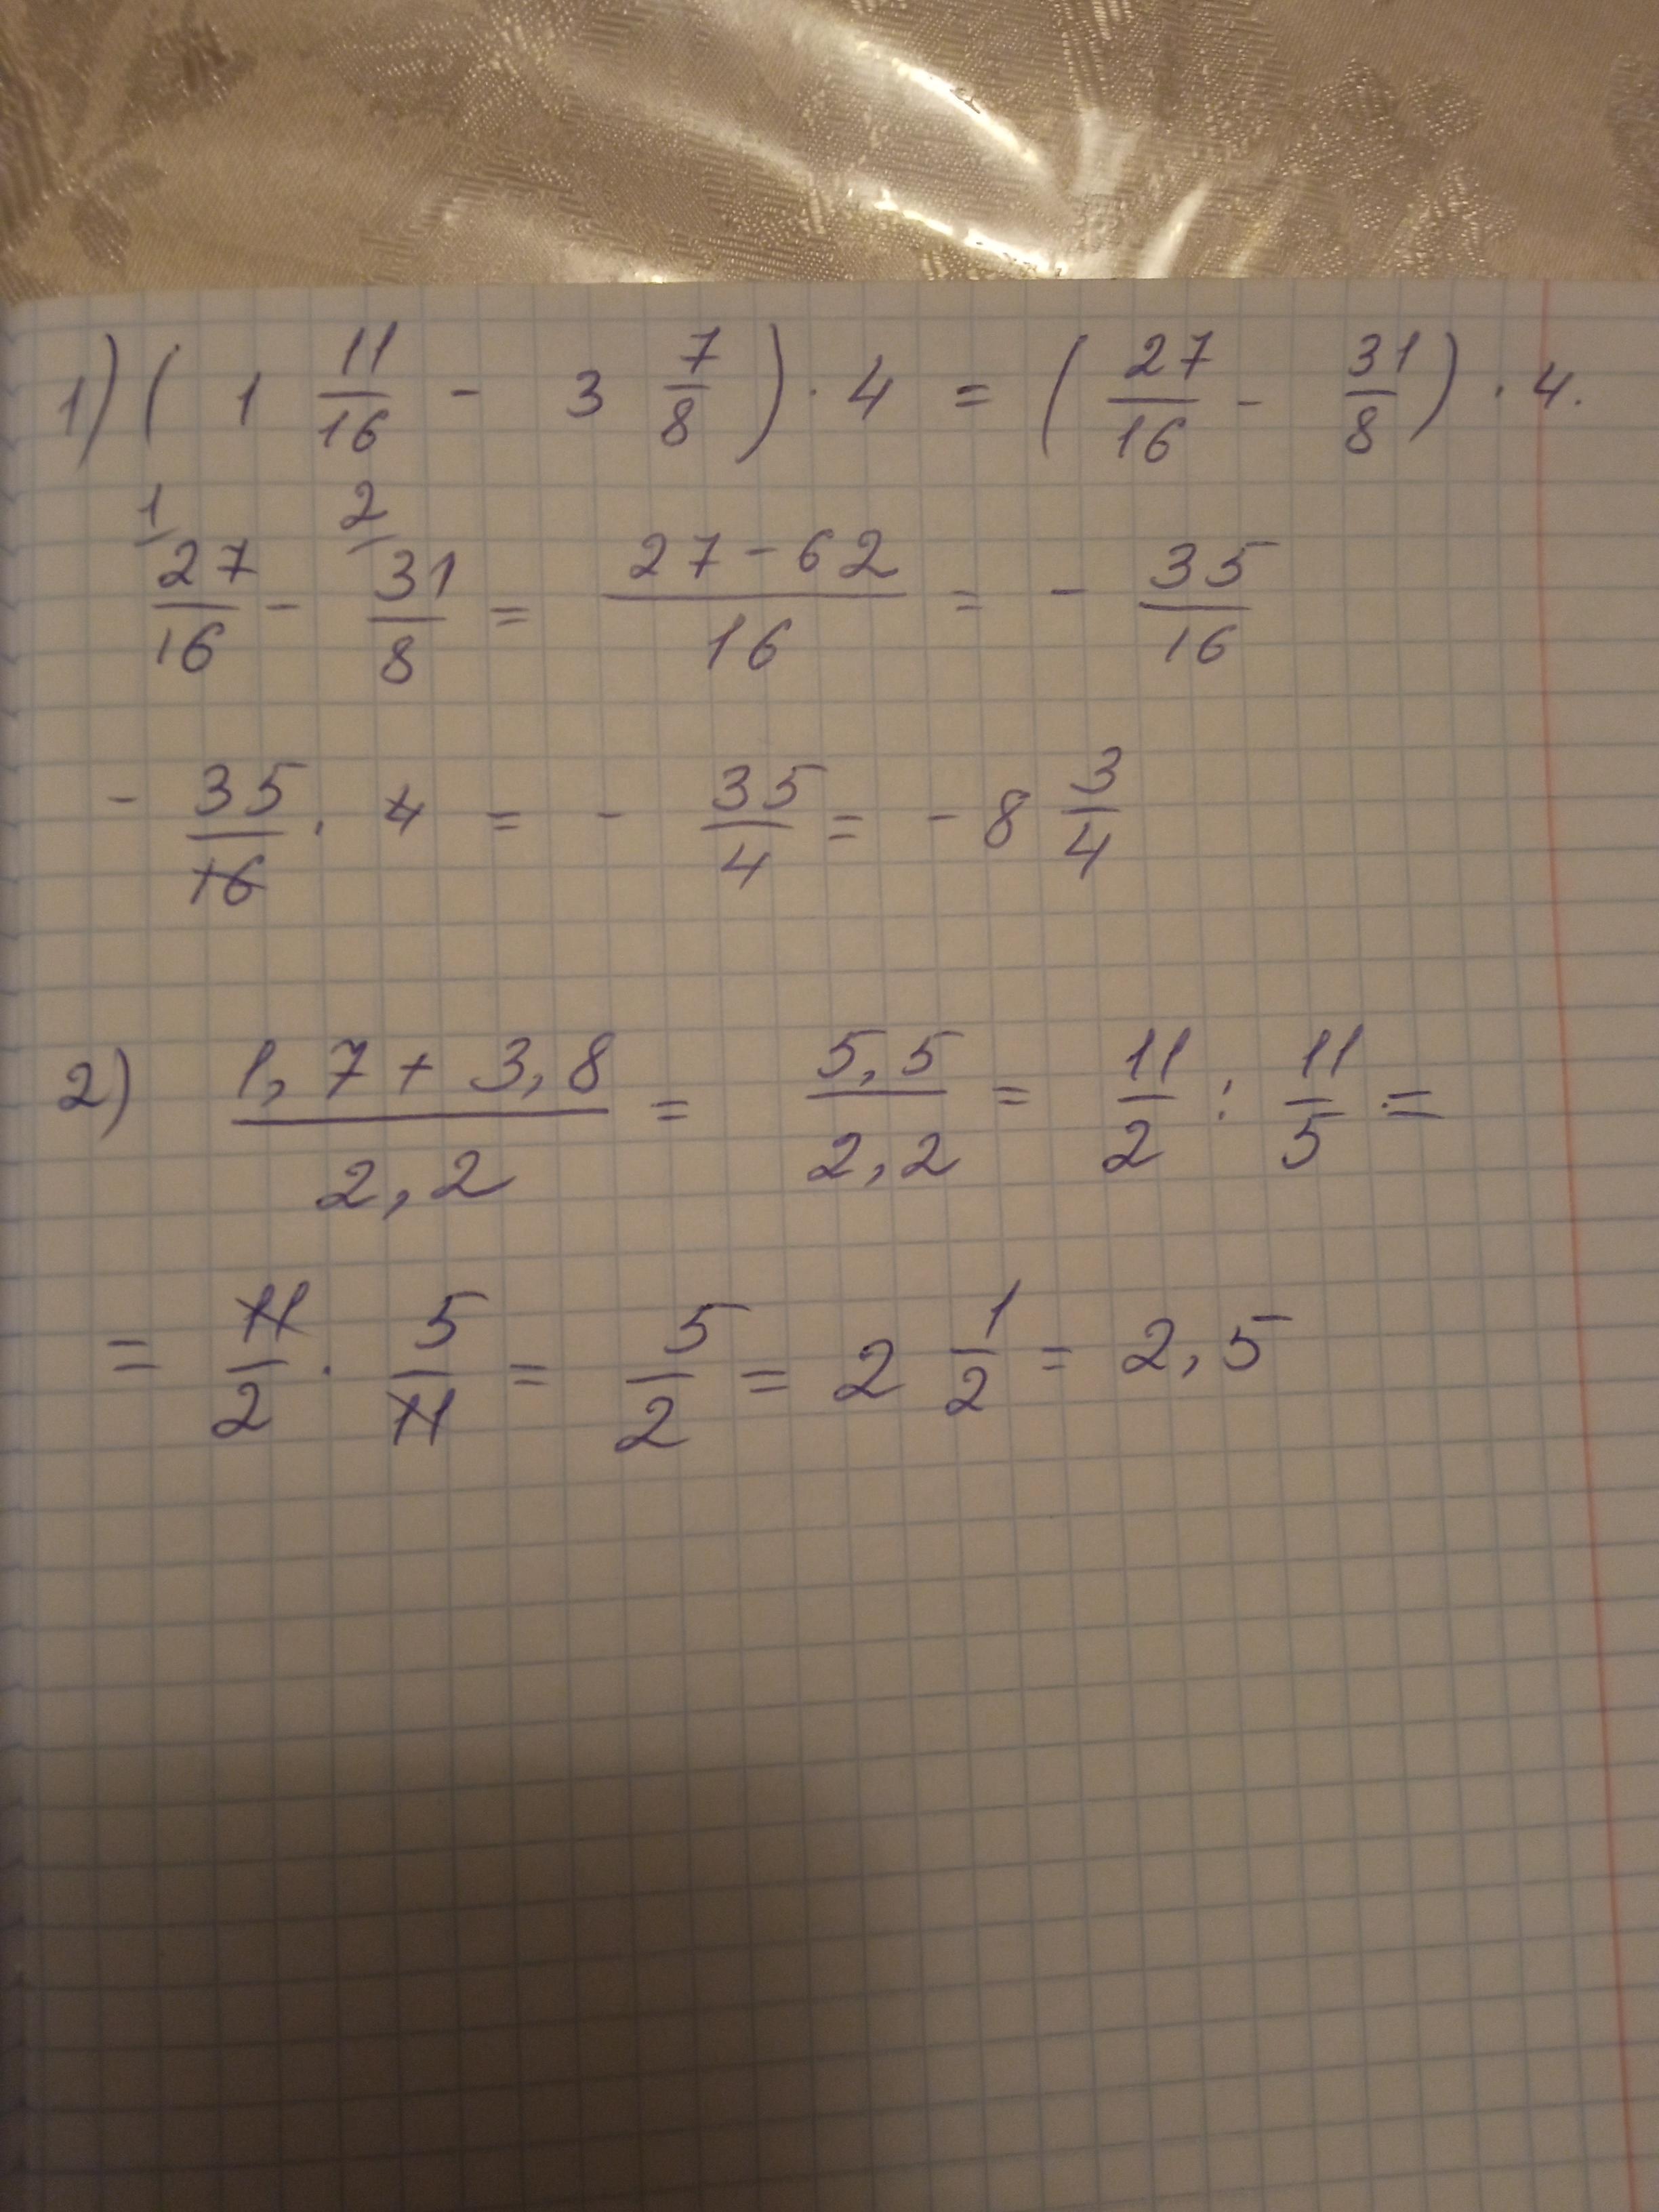 1) ( 1 11/16 - 3 7/8 ) · 4 = ( 27/16 - 31/8 ) · 4.
1/ 27/16 - 2/ 31/8 = 27-62/16 = - 35/16
- 35/16 · 4 = - 35/4 = - 8 3/4
2) 1,7 + 3,8/2,2 = 5,5/2,2 = 11/2 : 11/5 =
= 11/2 · 5/11 = 5/2 = 2 1/2 = 2,5